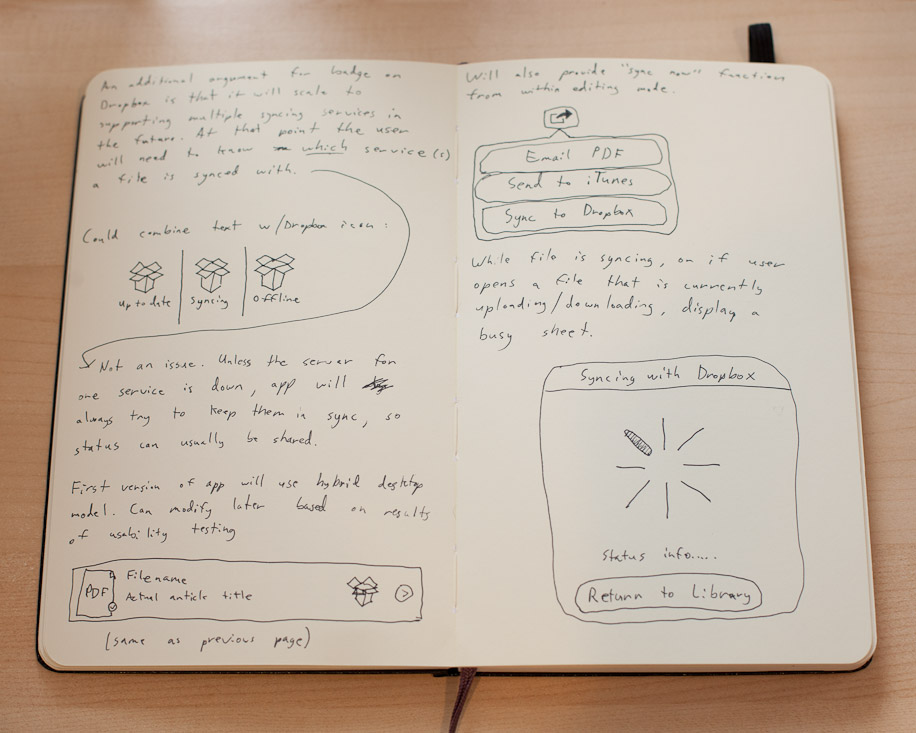 An additional argument for badge on
Dropbox is that it will scale to
supporting multiple syncing services in
the future. At that point the user
will need to know which service(s)
a file is synced with.
Could combine text w/Dropbox icon:
Up to date
Syncing
Offline
Not an issue. Unless the server for
one service is down, app will
always try to keep them in sync, so
status can usually be shared.
First version of app will use hybrid desktop
model. Can modify later based on results
of usability testing
PDF
Filename
Actual article title
(same as previous page)
Will also provide "sync now" function
from within editing mode.
Email PDF
Send to iTunes
Sync to Dropbox
While file is syncing, or if user
opens a file that is currently
uploading/downloading, display a
busy sheet.
Syncing with Dropbox
Status info....
Return to Library